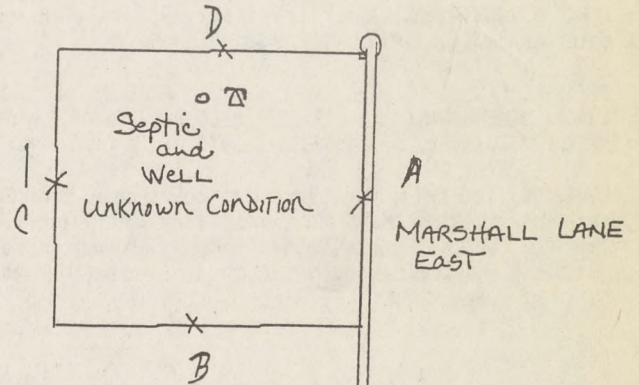 D
Septic
and
WELL
UNKNOWN CONDITION
C
A
MARSHALL LANE
EAST
B